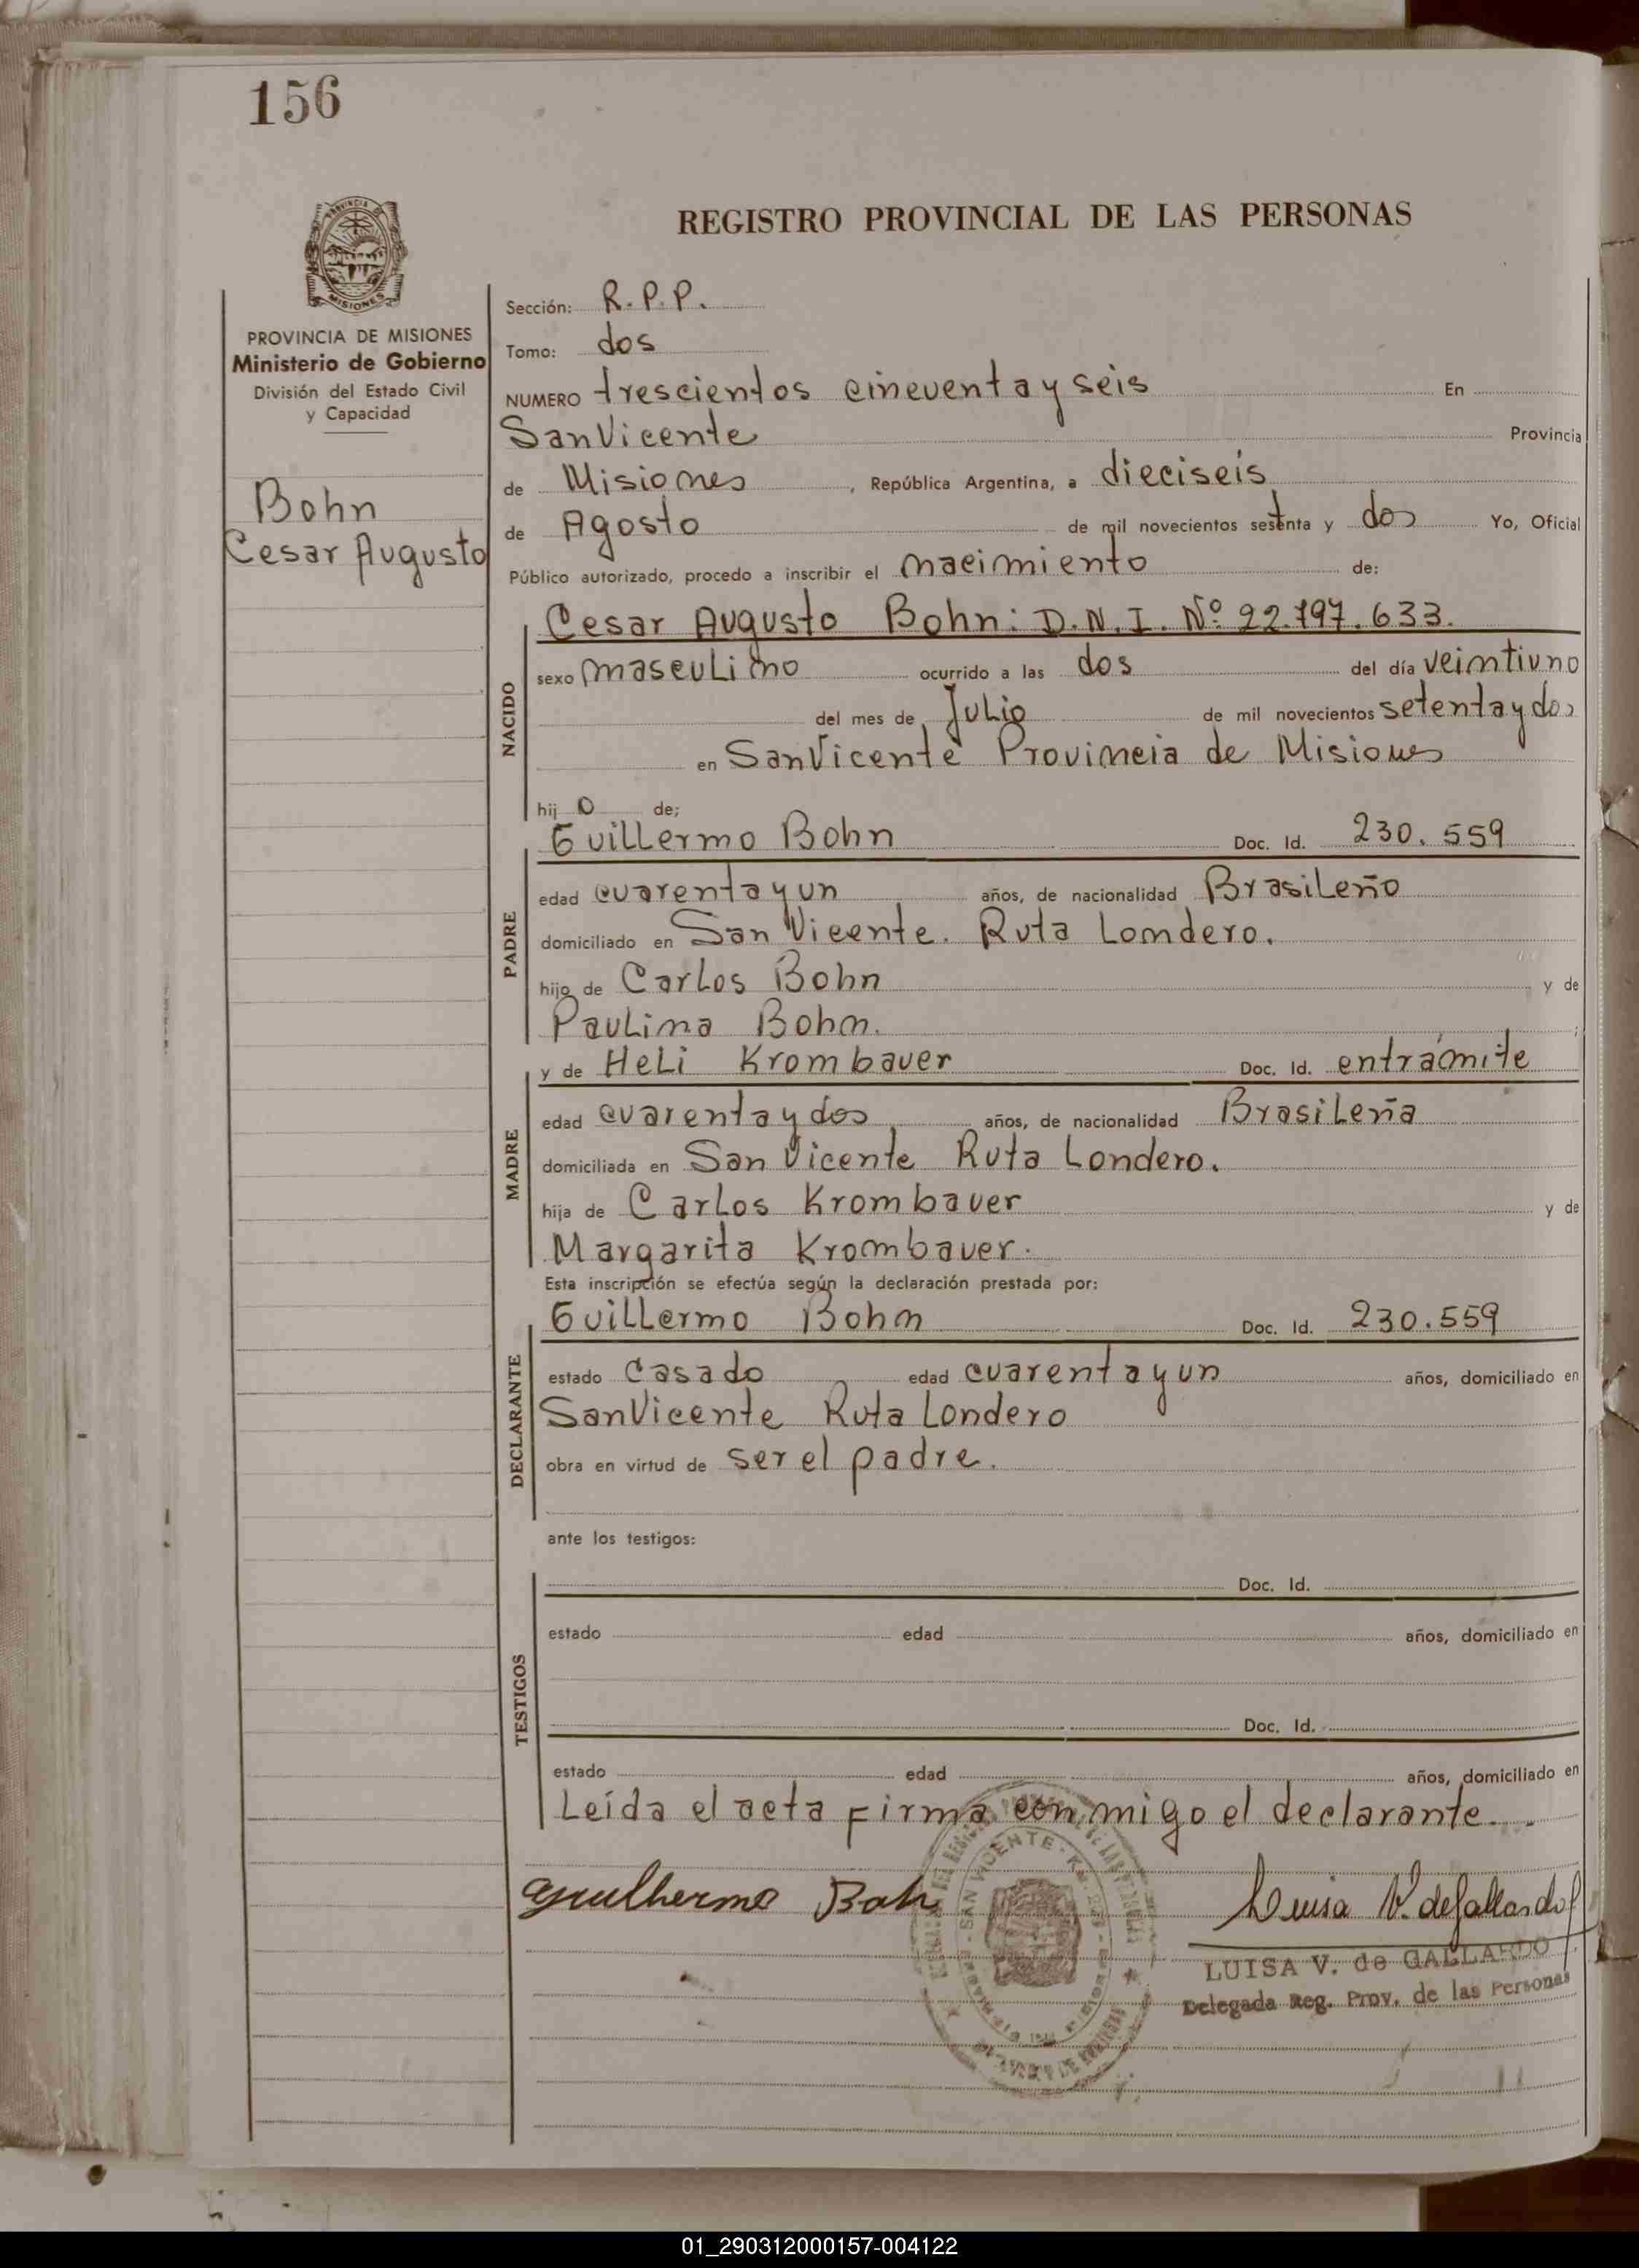 156
REGISTRO PROVINCIAL DE LAS PERSONAS
PROVINCIA DE MISIONES
Ministerio de Gobierno
División del Estado Civil
y Capacidad
Bohn
Cesar Augusto
Sección: R.P.P.
Tomo: dos
NUMERO trescientos cincuenta y seis En
San Vicente Provincia
de Misiones, República Argentina, a dieciseis
de Agosto de mil novecientos setenta y dos Yo, Oficial
Público autorizado, procedo a inscribir el nacimiento de:
NACIDO
Cesar Augusto Bohn: D.N.I. Nº 22.797.633.
sexo masculino ocurrido a las dos del día veintiuno
del mes de Julio de mil novecientos setenta y dos
en San Vicente Provincia de Misiones
hij o de;
PADRE
Guillermo Bohn Doc. Id. 230.559
edad cuarenta y un años, de nacionalidad Brasileño
domiciliado en San Vicente. Ruta Londero.
hijo de Carlos Bohn y de
Paulina Bohn. ;
MADRE
y de Heli Krombauer Doc. Id. en trámite
edad cuarenta y dos años, de nacionalidad Brasileña
domiciliada en San Vicente Ruta Londero.
hija de Carlos Krombauer y de
Margarita Krombauer.
Esta inscripción se efectúa según la declaración prestada por:
DECLARANTE
Guillermo Bohn Doc. Id. 230.559
estado casado edad cuarenta y un años, domiciliado en
San Vicente Ruta Londero
obra en virtud de ser el padre.
ante los testigos:
TESTIGOS
Doc. Id.
estado edad años, domiciliado en
Doc. Id.
estado edad años, domiciliado en
Leída el acta firma conmigo el declarante.
Guilherme Bohn
SAN VICENTE
Luisa V. de Gallardo
LUISA V. de GALLARDO
Delegada Reg. Prov. de las Personas
01_290312000157-004122